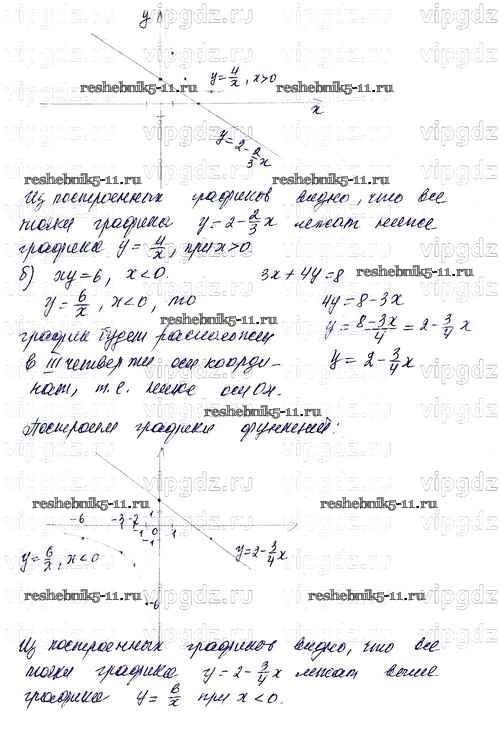 vipgdz.ru vipgdz.ru vipgdz.ru
y
y = 4/x, x>0
reshebnik5-11.ru reshebnik5-11.ru
x
vipgdz.ru vipgdz.ru vipgdz.ru
y = 2 - 2/3 x
reshebnik5-11.ru reshebnik5-11.ru
Из построенных графиков видно, что все
точки графика y = 2 - 2/3 x лежат ниже
графика y = 4/x, при x>0.
reshebnik5-11.ru
б) xy = 6, x < 0. 3x + 4y = 8
y = 6/x, x < 0, то 4y = 8 - 3x
reshebnik5-11.ru reshebnik5-11.ru
график будет расположен y = (8 - 3x)/4 = 2 - 3/4 x
в III четверти оси коорди- y = 2 - 3/4 x
нат, т.е. ниже оси Ox.
reshebnik5-11.ru
Построим графики функций:
reshebnik5-11.ru reshebnik5-11.ru
-6 -3 -2 -1 0 1
1
-1
y = 6/x, x < 0 y = 2 - 3/4 x
reshebnik5-11.ru reshebnik5-11.ru
-6
Из построенных графиков видно, что все
точки графика y = 2 - 3/4 x лежат выше
графика y = 6/x при x < 0.